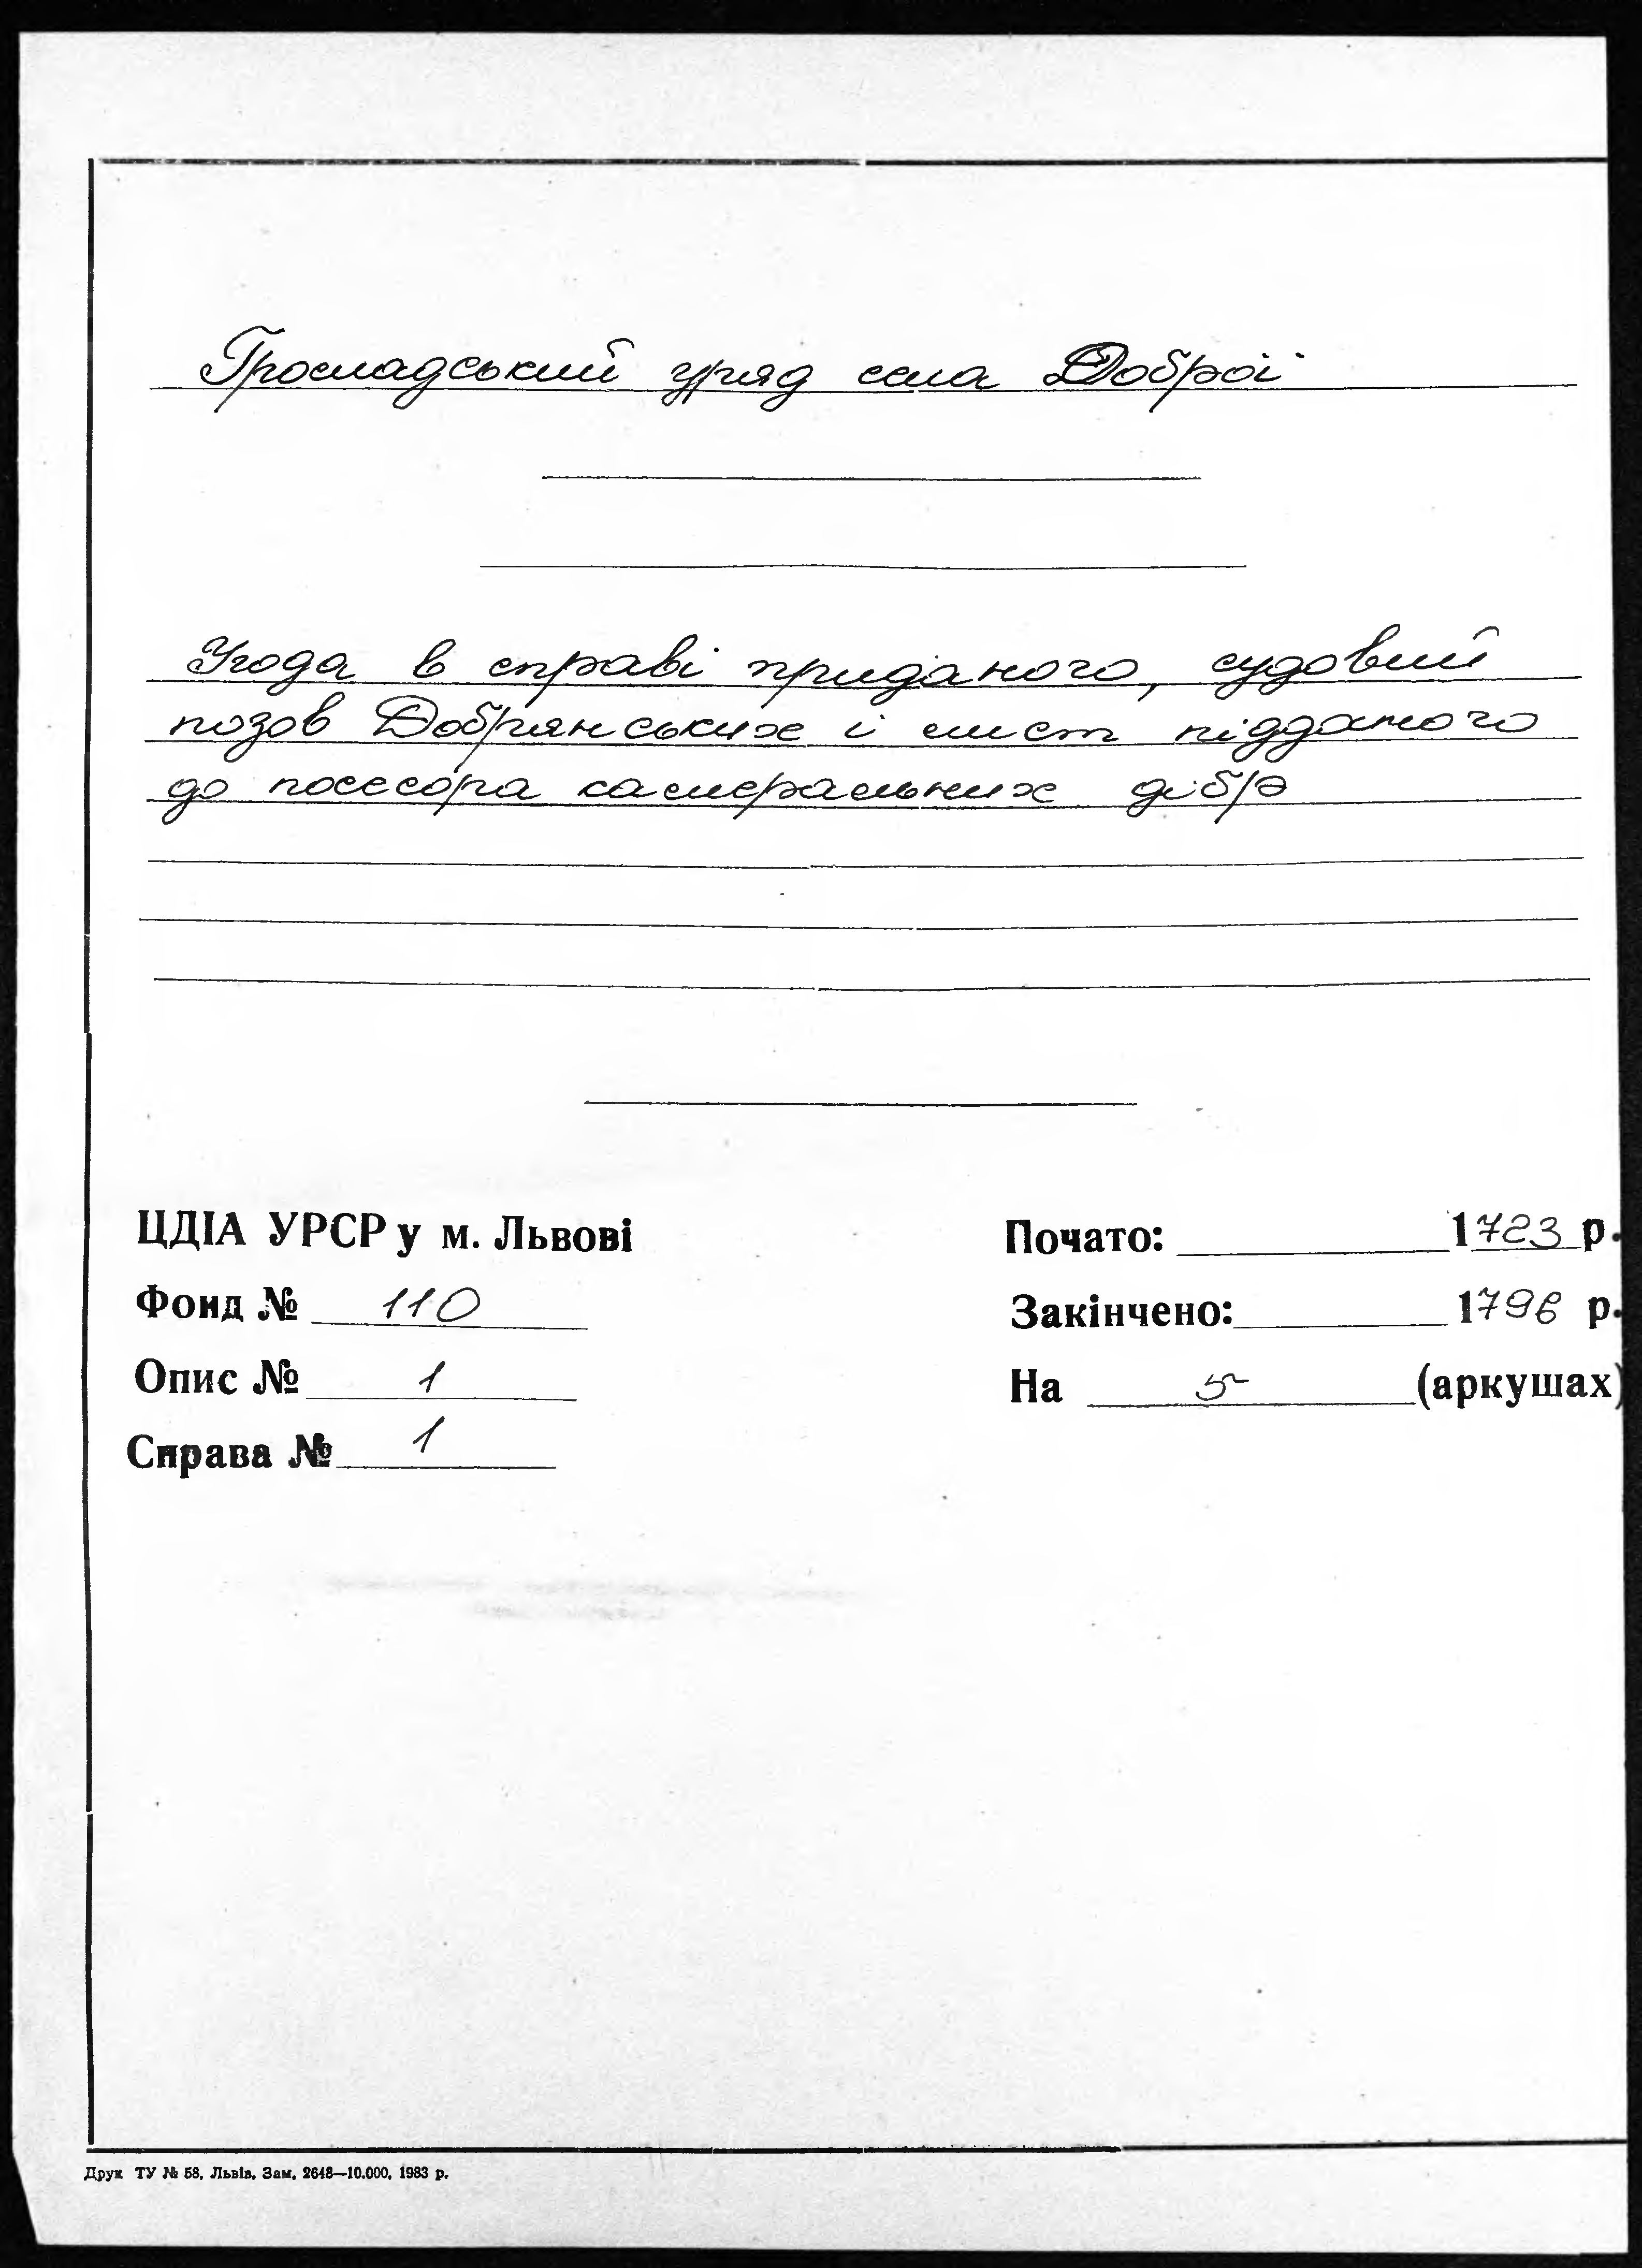 Громадський уряд села Доброї
Угода в справі приданого, судовий
позов Добрянських і лист підданого
до посесора камеральних дібр
ЦДІА УРСР у м. Львові
Фонд № 110
Опис № 1
Справа № 1
Почато: 1723 р.
Закінчено: 1796 р.
На 5 (аркушах)
Друк ТУ № 58, Львів, Зам, 2648—10.000, 1983 р.